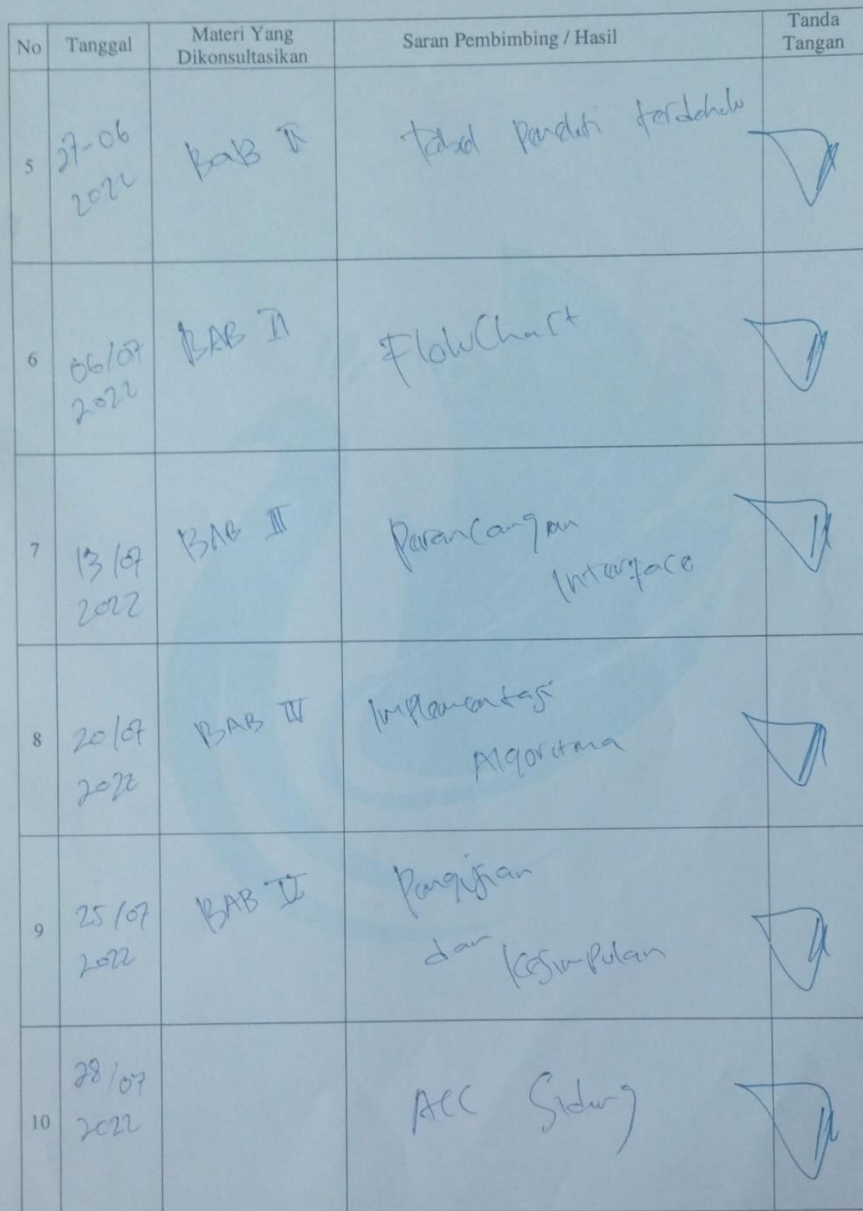 No
Tanggal
Materi Yang
Dikonsultasikan
Saran Pembimbing / Hasil
Tanda
Tangan
5
27-06
2022
BaB II
Tabel Peneliti terdahulu
6
06/07
2022
BAB II
FlowChart
7
13/07
2022
BAB III
Perancangan
Interface
8
20/07
2022
BAB IV
Implementasi
Algoritma
9
25/07
2022
BAB
Pengujian
dan
Kesimpulan
10
28/07
2022
ACC Sidang